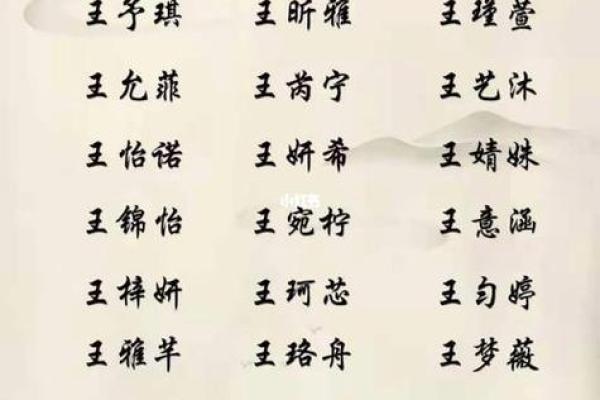 王予琪 王昕雅 王瑾萱
王允菲 王芮宁 王艺沐
王怡诺 王妍希 王婧姝
小红书
王锦怡 王宛柠 王意涵
王梓妍 王珂芯 王匀婷
王雅芊 王珞舟 王梦薇